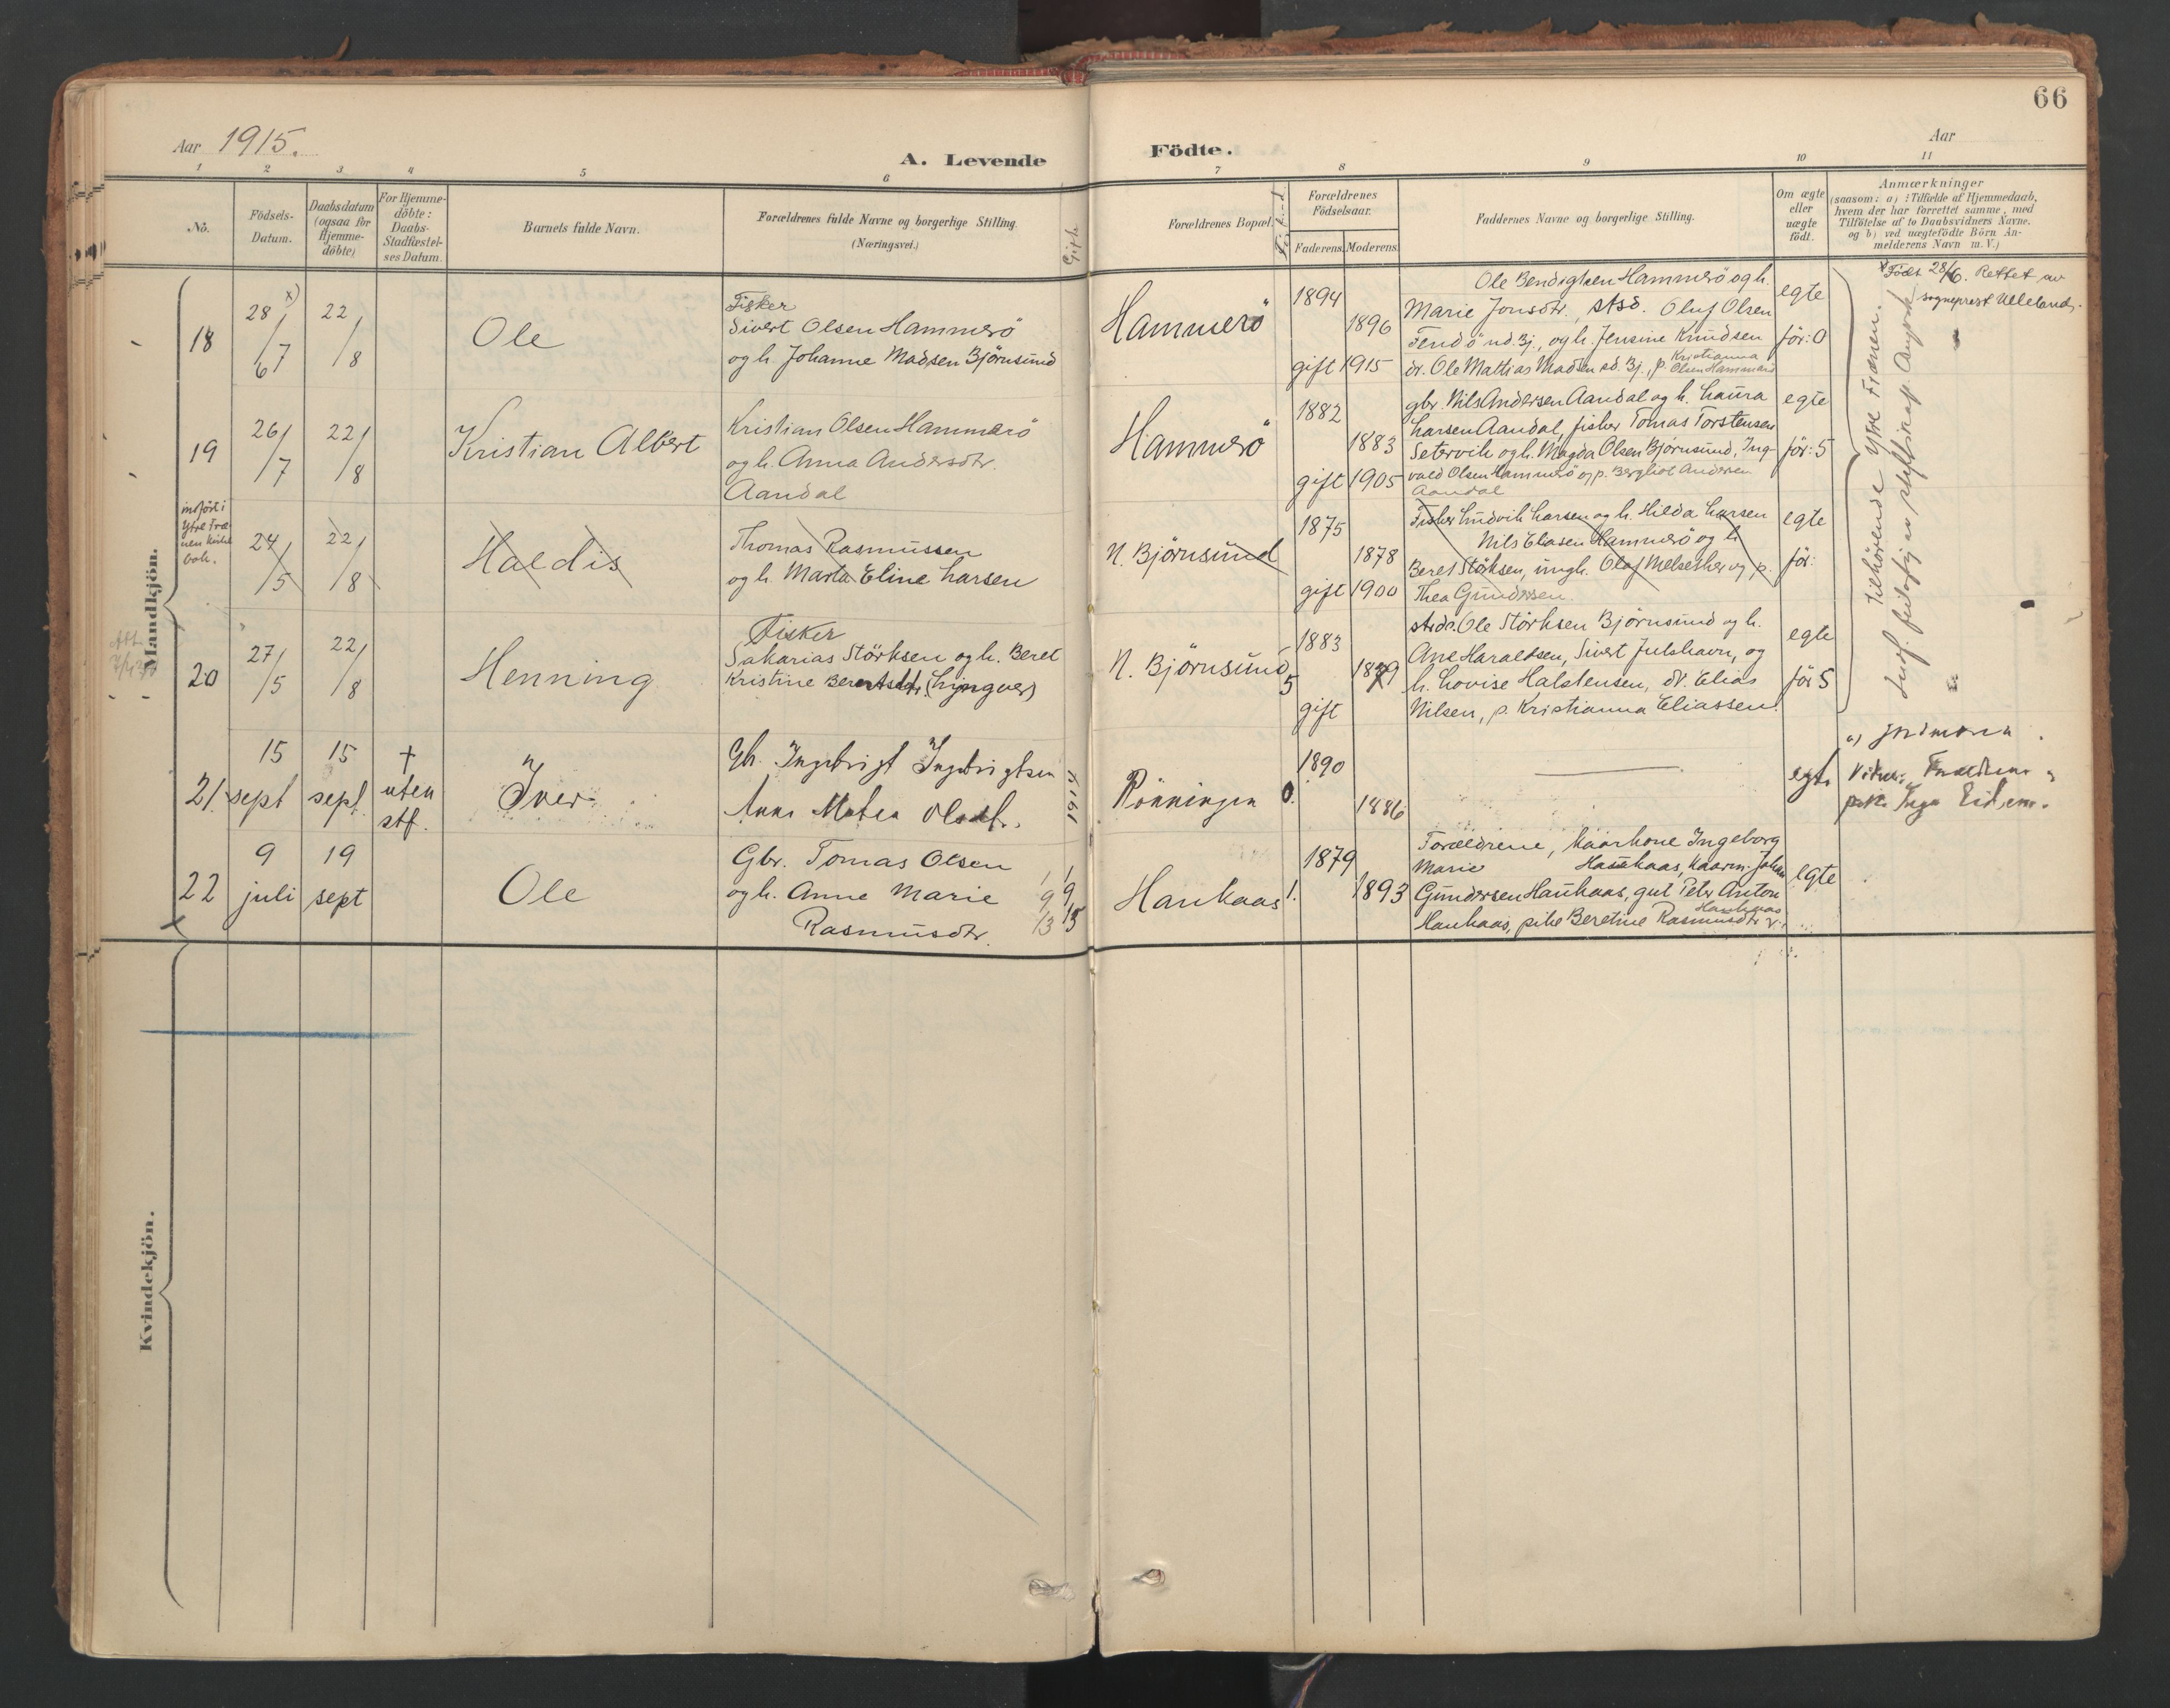 66
Aar 1915.
A. Levende Födte.
Aar
1 2 3 4 5 6 7 8 9 10 11
No.
Födsels-Datum.
Daabsdatum (ogsaa for Hjemme-döbte)
For Hjemme-döbte: Daabs-Stadfæstel-ses Datum.
Barnets fulde Navn.
Forældrenes fulde Navne og borgerlige Stilling (Næringsvei.)
Gift
Forældrenes Bopæl.
Forældrenes Födselsaar.
Faderens. Moderens.
Faddernes Navne og borgerlige Stilling.
Om ægte eller uægte födt.
Anmærkninger
(saasom: a) i Tilfælde af Hjemmedaab,
hvem der har forrettet samme, med
Tilföielse af to Daabsvidners Navne.
og b) ved uægtefödte Börn An-
melderens Navn m. V.)
Mandkjön.
18
28/7 x)
6
22/8
Ole
Fisker
Sivert Olsen Hammerö
og h. Johanne Madsen Björnsund
Hammerö
1894
1896
gift 1915
Ole Bendigtsen Hammerö og h.
Marie Jonsdtr., stsd. Oluf Olsen
Tendö nd. Bj., og h. Jensine Knudsen
dr. Ole Mathias Madsen sd. Bj., p. Kristianna
Olsen Hammerö
egte
för: 0
x Födt 28/6. Rettet av
sogneprest Ulleland.
19
26/7
22/8
Kristian Albert
Kristian Olsen Hammerö
og h. Anna Andersdtr.
Aandal
Hammerö
1882
1883
gift 1905
gbr. Nils Andersen Aandal og h. Laura
Larsen Aandal, fisker Tomas Torstensen
Setervik og h. Magda Olsen Björnsund, Ing-
vald Olsen Hammerö og p. Bergliot Andersen
Aandal
egte
för: 5
Tilhörende Ytre Frænen.
indfört i
Ytre Fræ-
nen kirke
bok.
24/5
22/8
Haldis
Thomas Rasmussen
og h. Marta Eline Larsen
N. Björnsund
1875
1878
gift 1900
Fisker Ludvik Larsen og h. Hilda Larsen
Nils Elasen Hammerö og h.
Beret Störksen, ungk. Olaf Melsether og p.
Thea Gundersen.
egte
för:
20
27/5
22/8
Henning
Fisker
Sakarias Störksen og h. Beret
Kristine Berentsdtr. (Lyngver)
N. Björnsund
5
1883
1879
gift
stsds. Ole Störksen Björnsund og h.
Ane Haraldsen, Sivert Julshavn, og
h. Lovise Halstensen, dr. Elias
Nilsen, p. Kristianna Eliassen.
egte
för 5
21.
15 sept
15 sept.
†
uten
stf.
Iver
Gbr. Ingebrigt Ingebrigtsen
Anna Matea Olsdt.
1914
Rönningen
0.
1890
1886
egte
a) jordmoren.
22
9 juli
19 sept
Ole
Gbr. Tomas Olsen
og h. Anne Marie
Rasmusdtr.
Haukaas
1.
1879
1893
Forældrene, kaarkone Ingeborg
Marie Haukaas, kaarm. Johan
Gundersen Haukaas, gut Peter Anton
Haukaas, pike Beretine Rasmusdtr Haukaas
egte
Kvindekjön.